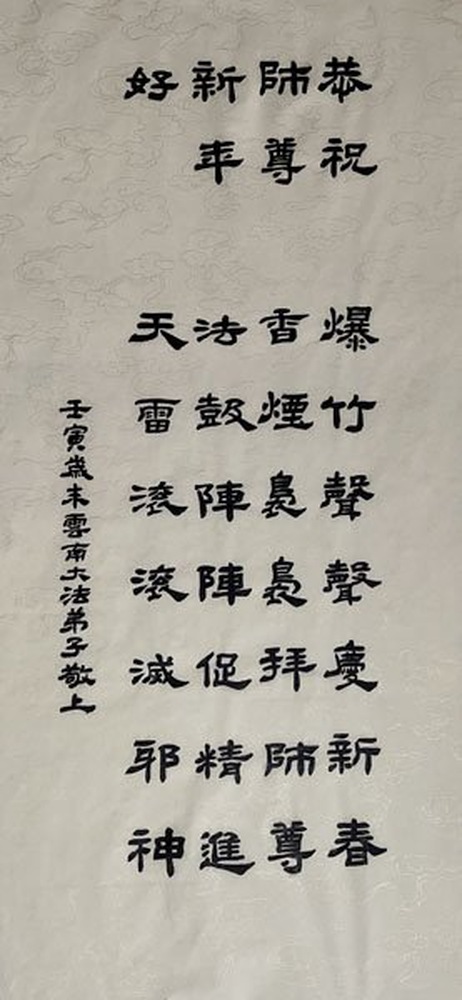 恭祝
師尊
新年
好
爆竹聲聲慶新春
香煙裊裊拜師尊
法鼓陣陣促精進
天雷滾滾滅邪神
壬寅歲末雲南大法弟子敬上